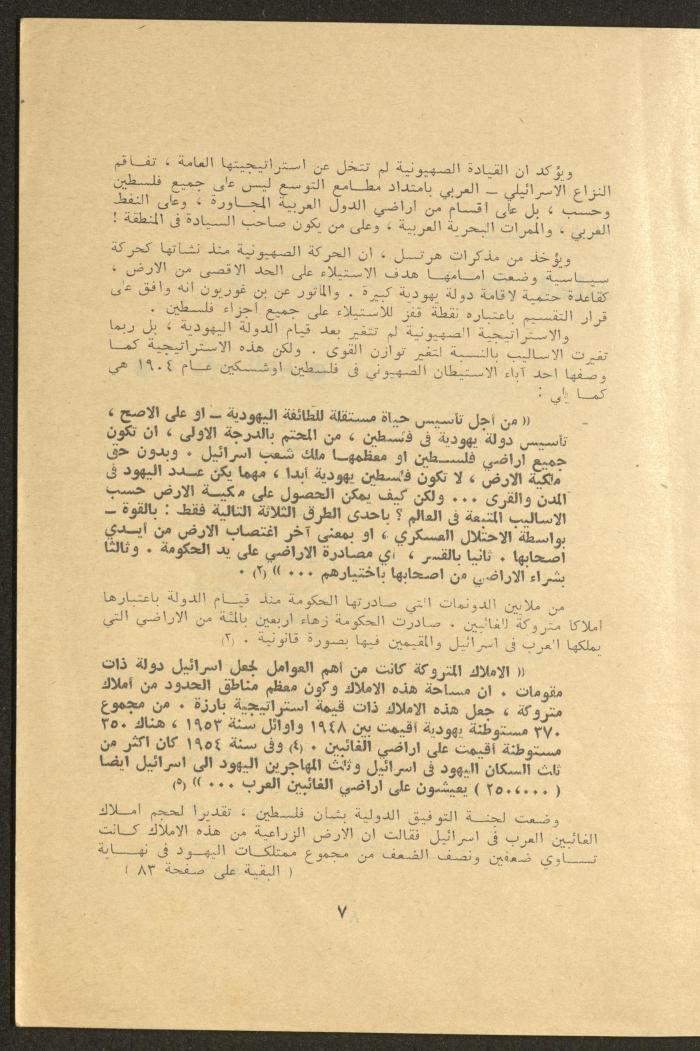 ويؤكد ان القيادة الصهيونية لم تتخل عن استراتيجيتها العامة ، تفاقم
النزاع الاسرائيلي – العربي بامتداد مطامع التوسع ليس على جميع فلسطين
وحسب ، بل على اقسام من اراضي الدول العربية المجاورة ، وعلى النفط
العربي ، والممرات البحرية العربية ، وعلى من يكون صاحب السيادة في المنطقة !
ويؤخذ من مذكرات هرتسل ، ان الحركة الصهيونية منذ نشاتها كحركة
سياسية وضعت امامها هدف الاستيلاء على الحد الاقصى من الارض ،
كقاعدة حتمية لاقامة دولة يهودية كبيرة . والماثور عن بن غوريون انه وافق على
قرار التقسيم باعتباره نقطة قفز للاستيلاء على جميع اجزاء فلسطين .
والاستراتيجية الصهيونية لم تتغير بعد قيام الدولة اليهودية ، بل ربما
تغيرت الاساليب بالنسبة لتغير توازن القوى . ولكن هذه الاستراتيجية كما
وصفها احد آباء الاستيطان الصهيوني في فلسطين اوشسكين عام ١٩٠٤ هي
كما يلي :
(( من أجل تأسيس حياة مستقلة للطائفة اليهودية – او على الاصح ،
تأسيس دولة يهودية في فلسطين ، من المحتم بالدرجة الاولى ، ان تكون
جميع اراضي فلسطين او معظمها ملك شعب اسرائيل . وبدون حق
ملكية الارض ، لا تكون فلسطين يهودية أبدا ، مهما يكن عدد اليهود في
المدن والقرى ... ولكن كيف يمكن الحصول على ملكية الارض حسب
الاساليب المتبعة في العالم ؟ باحدى الطرق الثلاثة التالية فقط : بالقوة –
بواسطة الاحتلال العسكري ، او بمعنى آخر اغتصاب الارض من أيدي
اصحابها . ثانيا بالقسر ، أي مصادرة الاراضي على يد الحكومة . وثالثا
بشراء الاراضي من اصحابها باختيارهم ... )) (٢) .
من ملايين الدونمات التي صادرتها الحكومة منذ قيام الدولة باعتبارها
املاكا متروكة للغائبين . صادرت الحكومة زهاء اربعين بالمئة من الاراضي التي
يملكها العرب في اسرائيل والمقيمين فيها بصورة قانونية . (٣)
(( الاملاك المتروكة كانت من أهم العوامل لجعل اسرائيل دولة ذات
مقومات . ان مساحة هذه الاملاك وكون معظم مناطق الحدود من أملاك
متروكة ، جعل هذه الاملاك ذات قيمة استراتيجية بارزة . من مجموع
٣٧٠ مستوطنة يهودية أقيمت بين ١٩٤٨ واوائل سنة ١٩٥٣ ، هناك ٣٥٠
مستوطنة أقيمت على اراضي الغائبين . (٤) وفي سنة ١٩٥٤ كان اكثر من
ثلث السكان اليهود في اسرائيل وثلث المهاجرين اليهود الى اسرائيل ايضا
( ٢٥٠،٠٠٠ ) يعيشون على أراضي الغائبين العرب ... )) (٥)
وضعت لجنة التوفيق الدولية بشان فلسطين ، تقديرا لحجم املاك
الغائبين العرب في اسرائيل فقالت ان الارض الزراعية من هذه الاملاك كانت
تساوي ضعفين ونصف الضعف من مجموع ممتلكات اليهود في نهاية
( البقية على صفحة ٨٣ )
٧